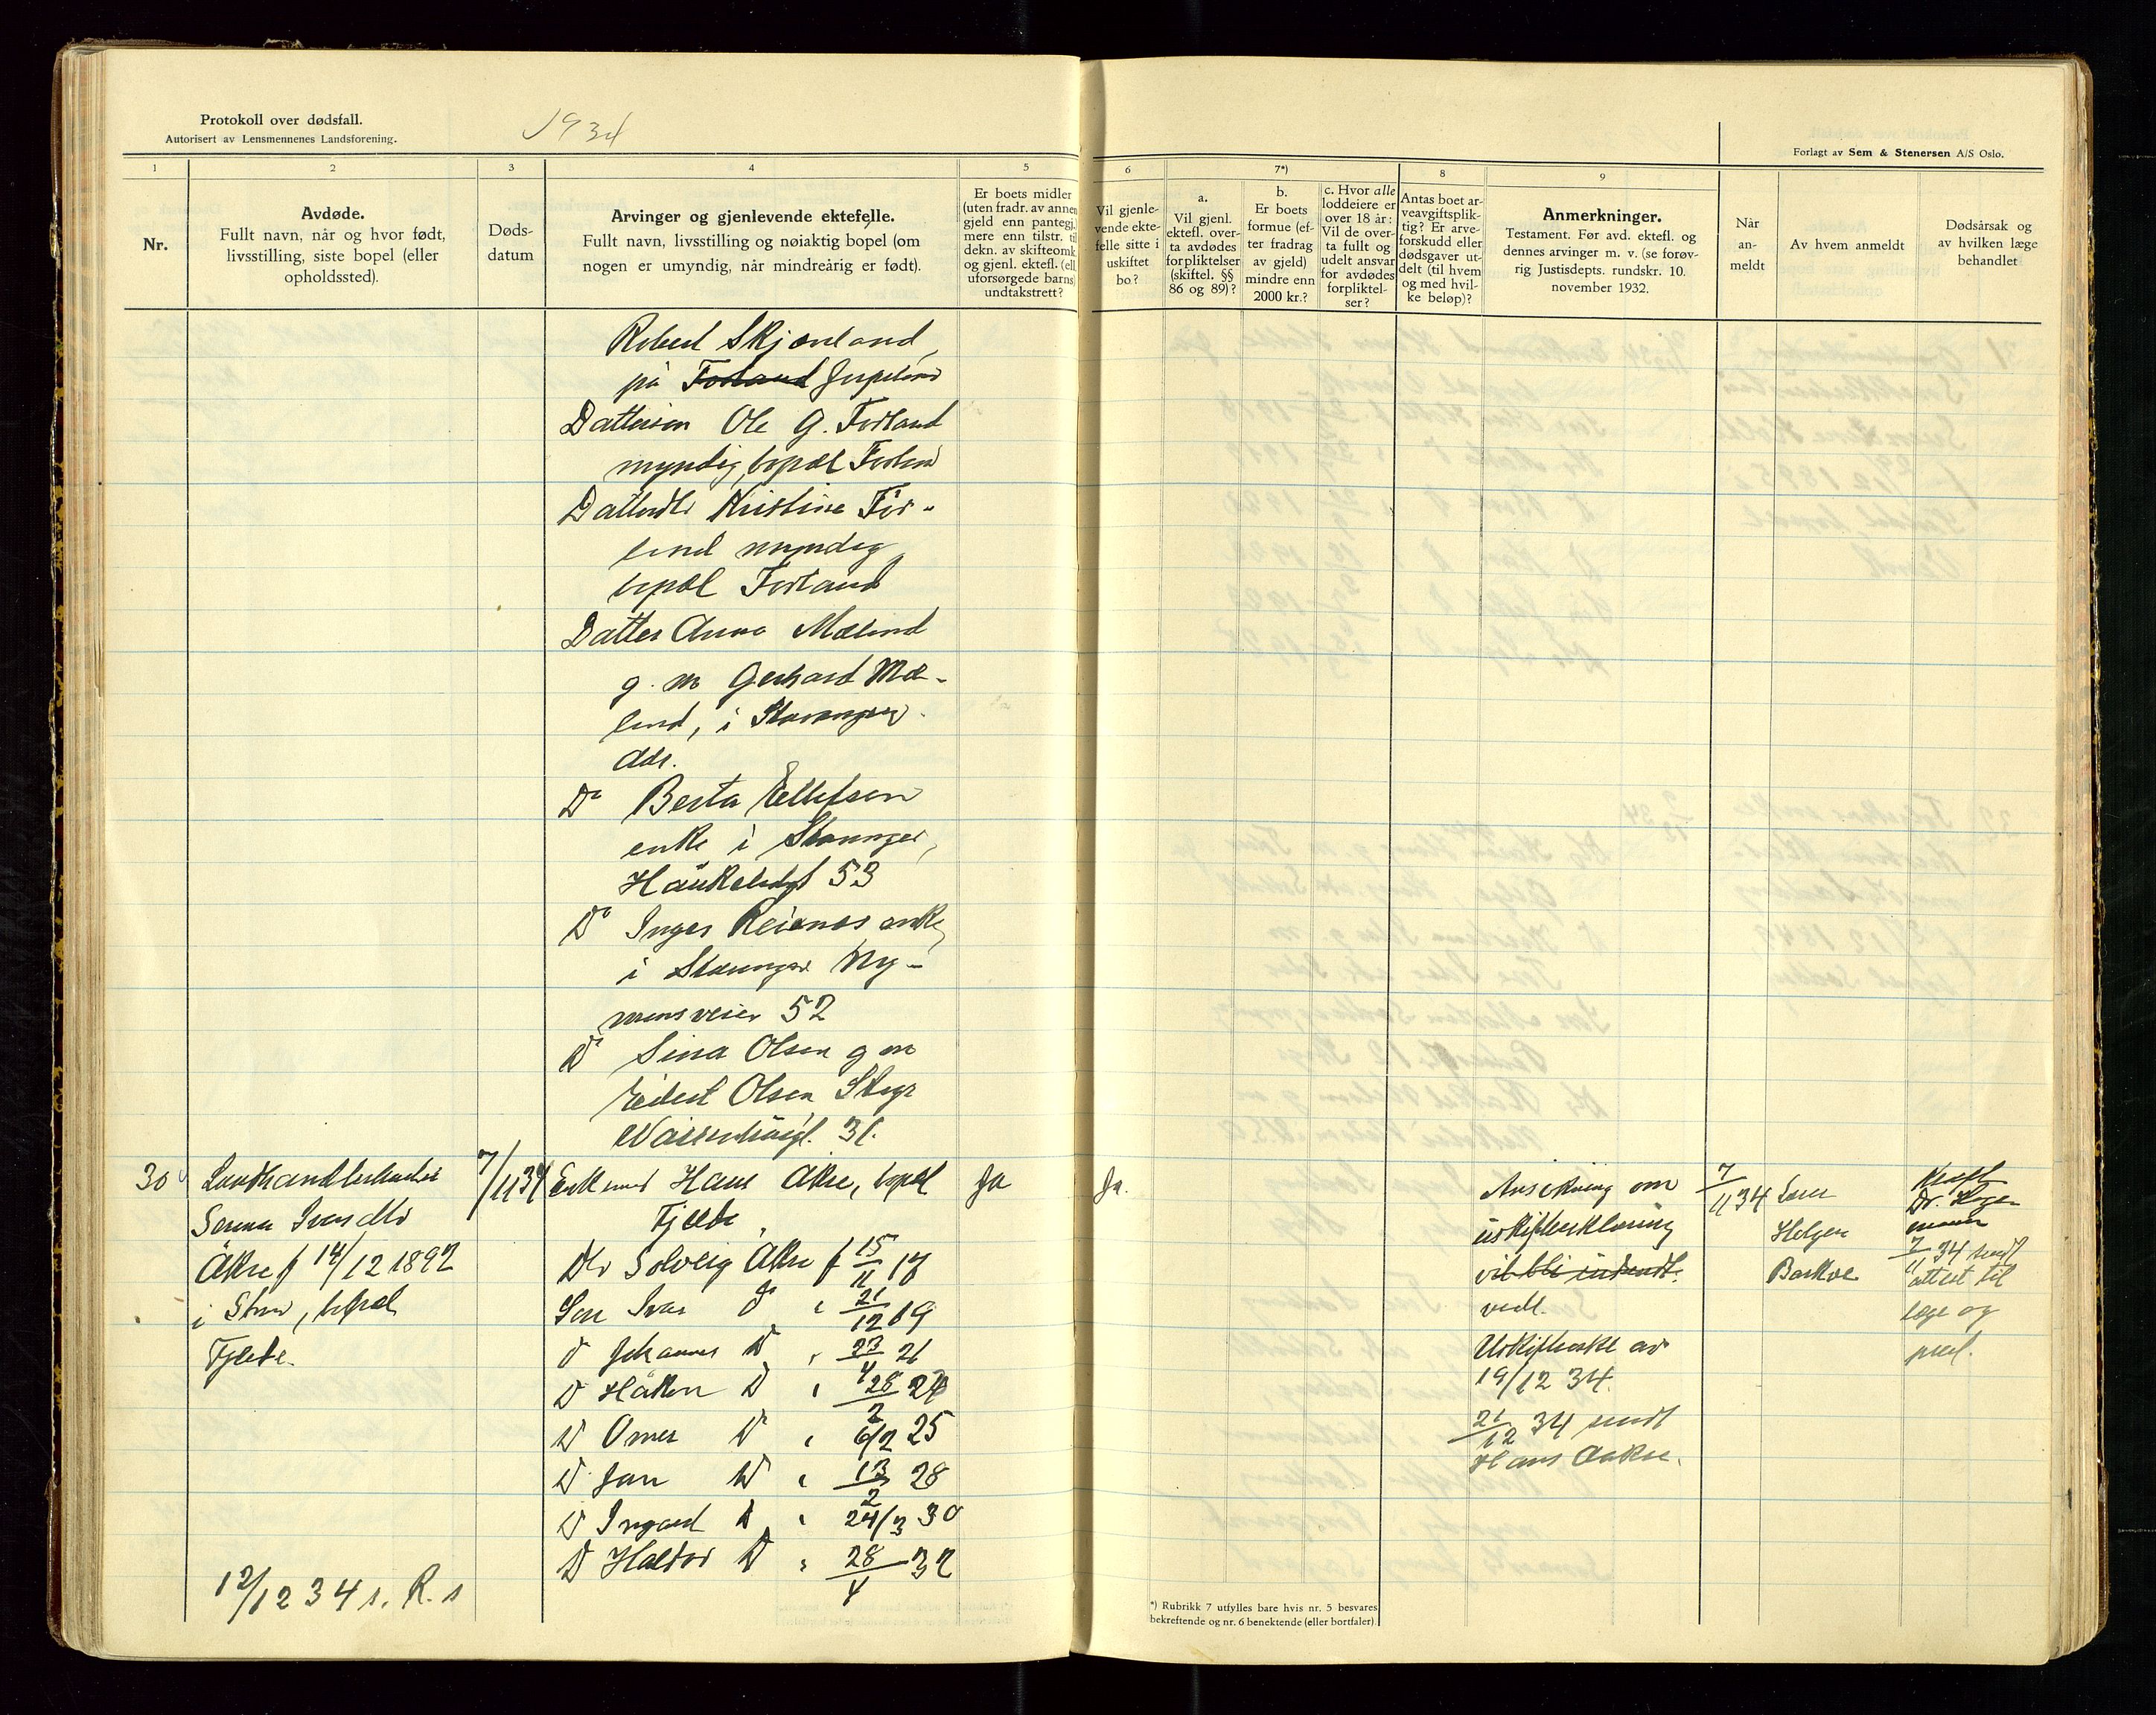 Protokoll over dødsfall.
Autorisert av Lensmennenes Landsforening.
1934
Forlagt av Sem & Stenersen A/S Oslo.
1 2 3 4 5 6 7*) 8 9
Nr.
Avdøde.
Fullt navn, når og hvor født,
livsstilling, siste bopel (eller
opholdssted).
Døds-
datum
Arvinger og gjenlevende ektefelle.
Fullt navn, livsstilling og nøiaktig bopel (om
nogen er umyndig, når mindreårig er født).
Er boets midler
(uten fradr. av annen
gjeld enn pantegj.)
mere enn tilstr. til
dekn. av skifteomk.
og gjenl. ektefl. (ell.
uforsørgede barns)
undtakstrett?
Vil gjenle-
vende ekte-
felle sitte i
uskiftet
bo?
a.
Vil gjenl.
ektefl. over-
ta avdødes
forpliktelser
(skiftel. §§
86 og 89)?
b.
Er boets
formue (ef-
ter fradrag
av gjeld)
mindre enn
2000 kr.?
c. Hvor alle
loddeiere er
over 18 år:
Vil de over-
ta fullt og
udelt ansvar
for avdødes
forpliktel-
ser?
Antas boet ar-
veavgiftsplik-
tig? Er arve-
forskudd eller
dødsgaver ut-
delt (til hvem
og med hvil-
ke beløp)?
Anmerkninger.
Testament. Før avd. ektefl. og
dennes arvinger m. v. (se forøv-
rig Justisdepts. rundskr. 10.
november 1932.
Når
an-
meldt
Av hvem anmeldt
Dødsårsak og
av hvilken læge
behandlet
Robert Skjøreland
på Forland
Datterson Ole G. Forland
myndig, bopæl Forland
Datterdtr Kristine For-
land myndig
bopæl Forland
Datter Anna Mæland
g. m Gerhard Mæ-
land, i Stavanger
adr.
Do Berta Ellefsen
enke i Stavanger,
Haukeligt 53
Do Inger Reianes enke
i Stavanger Ny-
mansveien 52
Do Sina Olsen g m
Eilert Olsen Stvgr
31.
30 Landhandlerhustru
Serina Ivarsdtr
Åkre f 14/12 1892
i , bopæl
Fjelde.
7/11 34
Enkemand Hans Åkre, bopæl
Fjelde.
Dtr Solveig Åkre f 15/11 17
Søn Ivar do " 21/12 19
D Johannes D " 23/4 21
D Håkon D " 28/2 24
D Omer D " 6/2 25
D Jan D " 13/2 28
D Ingard D " 24/3 30
D Haldor D " 28/4 32
Ja
Ja.
Ansøkning om
uskifteerklæring
vil bli indsendt.
vedl.
Uskifteerkl av
19/12 34.
21/12 34 sendt
Hans Aakre.
7/11 34
Helgen
Barkve
Kreft
Dr. Hage-
mann
7/11 34 sendt
attest til
læge og
prest.
12/12 34 s. R. s
*) Rubrikk 7 utfylles bare hvis nr. 5 besvares
bekreftende og nr. 6 benektende (eller bortfaler).